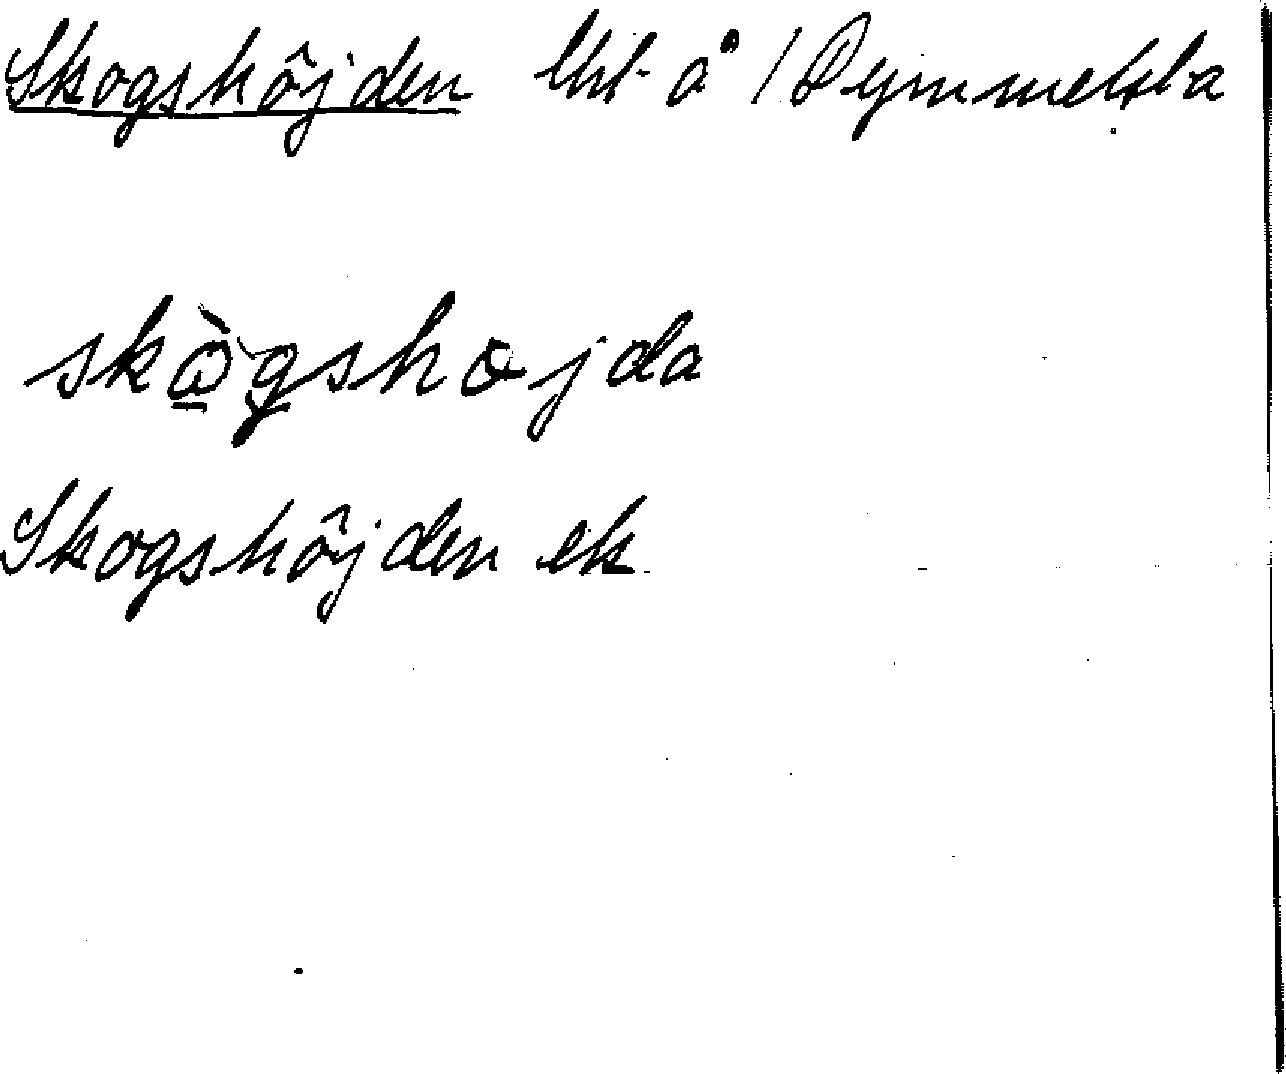 Skogshöjden lht å 1 Dymmelsta
skògshojda
Skogshöjden ek